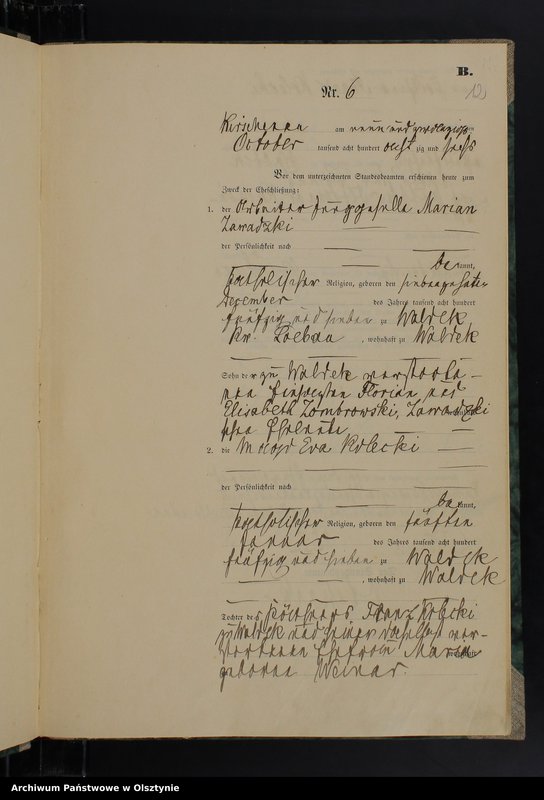 B.
Nr. 6
12
Kirschenau am neun und zwanzigsten
October tausend acht hundert acht zig und sechs
Vor dem unterzeichneten Standesbeamten erschienen heute zum
Zweck der Eheschließung:
1. der Arbeiter Junggeselle Marian
Zawadzki
der Persönlichkeit nach
bekannt,
katholischer Religion, geboren den siebenzehnten
December des Jahres tausend acht hundert
fünfzig und sieben zu Waldek
Kr. Loebau, wohnhaft zu Waldek
Sohn der zu Waldek verstorbe-
nen Einsassen Florian und
Elisabeth Zombrowski, Zawadzki
schen Eheleute
2. die Magd Eva Kolecki
der Persönlichkeit nach
bekannt,
katholischer Religion, geboren den fünften
Januar des Jahres tausend acht hundert
fünfzig und sieben zu Waldek
, wohnhaft zu Waldek
Tochter des Käthners Franz Kolecki
zu Waldek und seiner daselbst ver-
storbenen Ehefrau Maria
geborene Weiner.
Archiwum Państwowe w Olsztynie